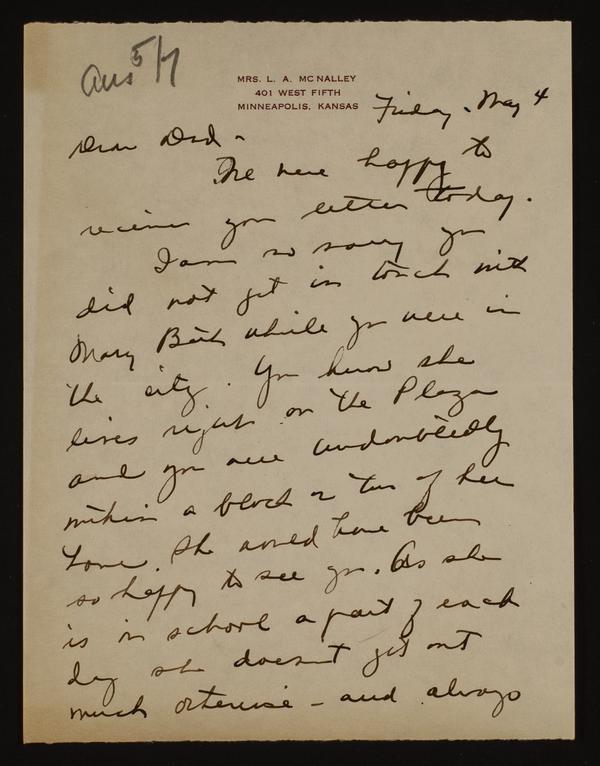 Ans 5/7
MRS. L. A. MCNALLEY
401 WEST FIFTH
MINNEAPOLIS, KANSAS
Friday - May 4
Dear Dad -
We were happy to
receive your letter today.
I am so sorry you
did not get in touch with
Mary Beth while you were in
the city. You know she
lives right on the Plaza
and you were undoubtedly
within a block or two of her
home. She would have been
so happy to see you. As she
is in school a part of each
day she doesn't get out
much otherwise - and always